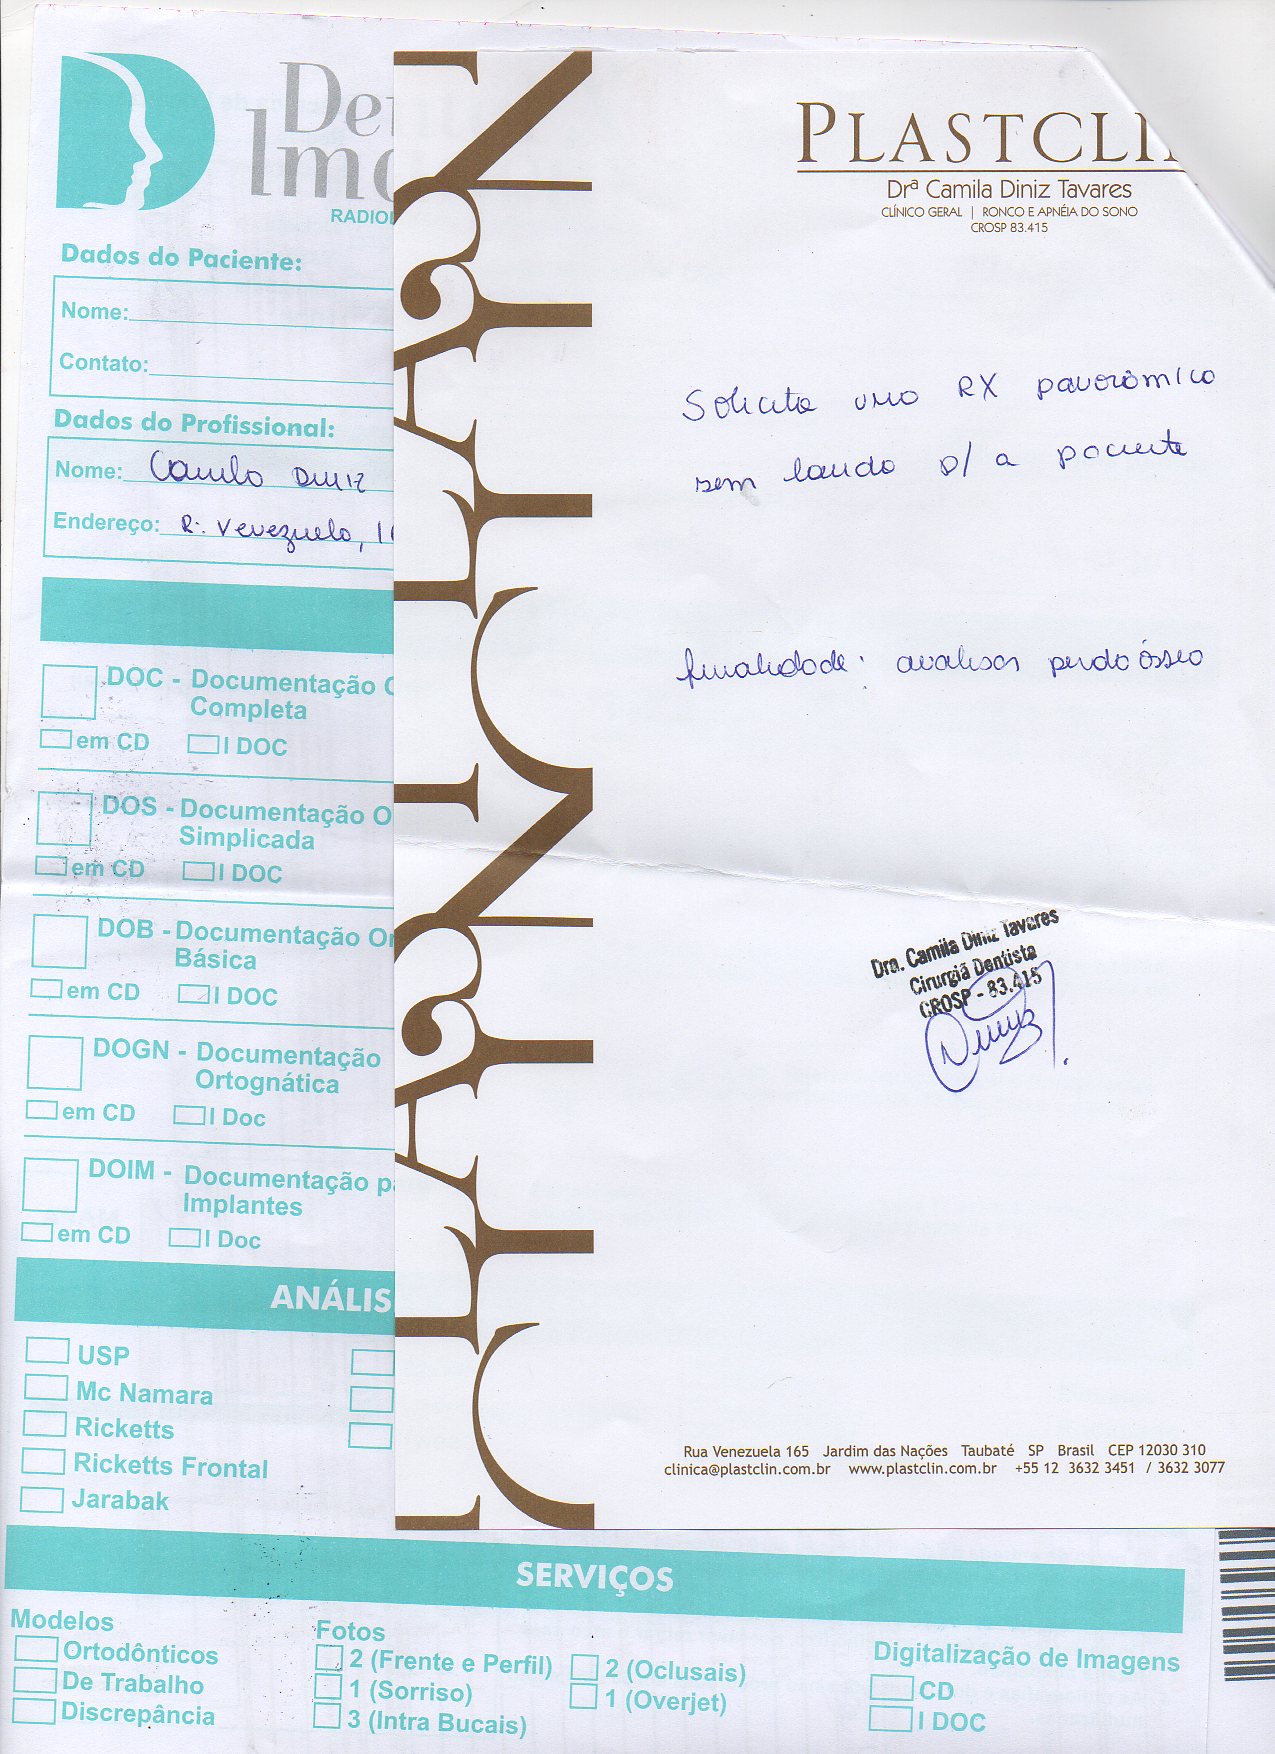 De
Imo
RADIOL
Dados do Paciente:
Nome:
Contato:
Dados do Profissional:
Nome: Camila Diniz
Endereço: R. Venezuela, 1
DOC - Documentação O
Completa
em CD I DOC
DOS - Documentação O
Simplicada
em CD I DOC
DOB - Documentação Or
Básica
em CD I DOC
DOGN - Documentação
Ortognática
em CD I Doc
DOIM - Documentação pa
Implantes
em CD I Doc
ANÁLIS
USP
Mc Namara
Ricketts
Ricketts Frontal
Jarabak
PLASTCLIN
Drª Camila Diniz Tavares
CLÍNICO GERAL | RONCO E APNÉIA DO SONO
CROSP 83.415
Solicito uma RX panorâmica
sem laudo p/ a paciente
finalidade: avaliar perda óssea
Dra. Camila Diniz Tavares
Cirurgiã Dentista
CROSP - 83.415
Diniz
Rua Venezuela 165 Jardim das Nações Taubaté SP Brasil CEP 12030 310
clinica@plastclin.com.br www.plastclin.com.br +55 12 3632 3451 / 3632 3077
SERVIÇOS
Modelos
Ortodônticos
De Trabalho
Discrepância
Fotos
2 (Frente e Perfil) 2 (Oclusais)
1 (Sorriso) 1 (Overjet)
3 (Intra Bucais)
Digitalização de Imagens
CD
I DOC